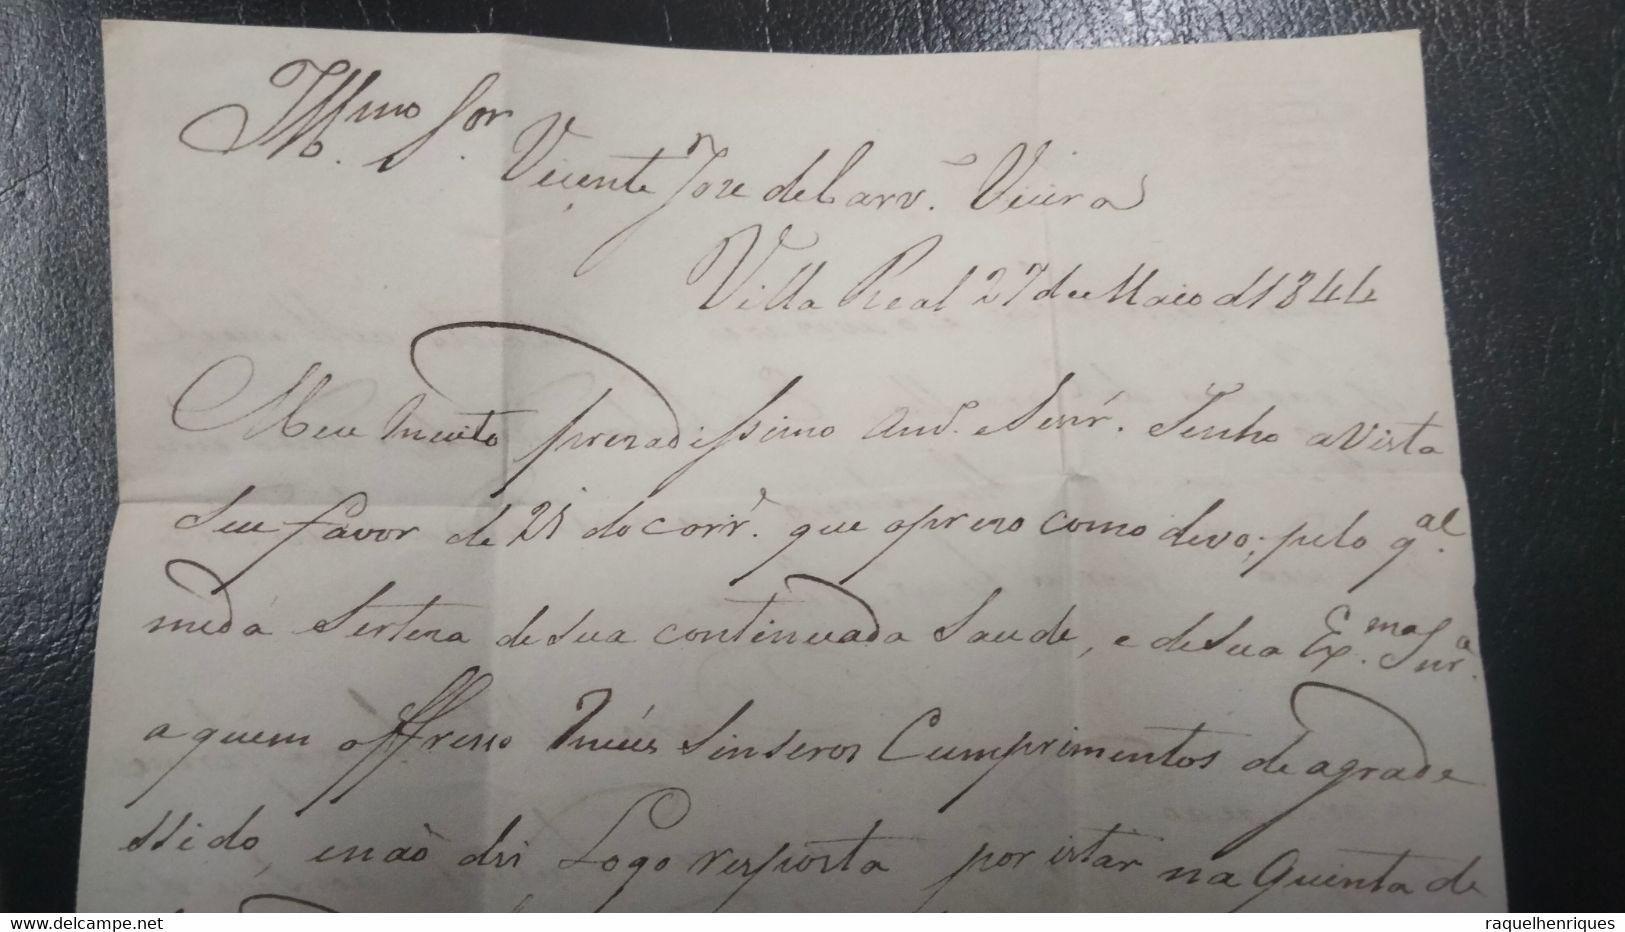 Illmo Snr
Vicente Joze de Carv. Vieira
Villa Real 27 de Maio d 1844
Meu muito prezadissimo Am.º e Senr. Tenho a vista
seu favor de 21 do corr.e que aprezo como devo, pelo q.al
me dá serteza de sua continuada Saude, e de sua Ex.ma Snr.a
a quem offresso meus sinseros Cumprimentos de agrade
ssido, e naõ dei Logo resposta por estar na Quenta de
www.delcampe.net
raquelhenriques